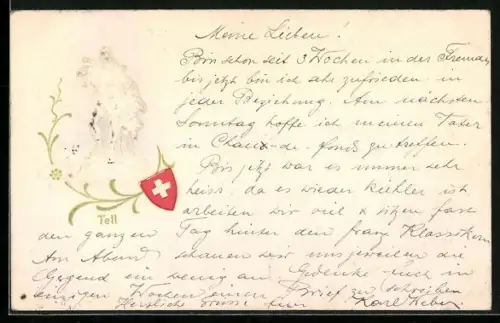 Meine Lieben!
Bin schon seit 3 Wochen in der Fremde,
bis jetzt bin ich sehr zufrieden in
jeder Beziehung. Am nächsten
Sonntag hoffe ich meinen Vater
in Chaux-de-fonds zu treffen.
Bis jetzt war es immer sehr
heiss, da es wieder kühler ist
arbeiten wir viel & sitzen fast
den ganzen Tag hinter den franz Klassikern
Am Abend schauen wir uns jeweilen die
Gegend ein wenig an. Gedenke euch in
einigen Wochen einen Brief zu schreiben
Herzliche Grüsse Karl Weber.
Tell